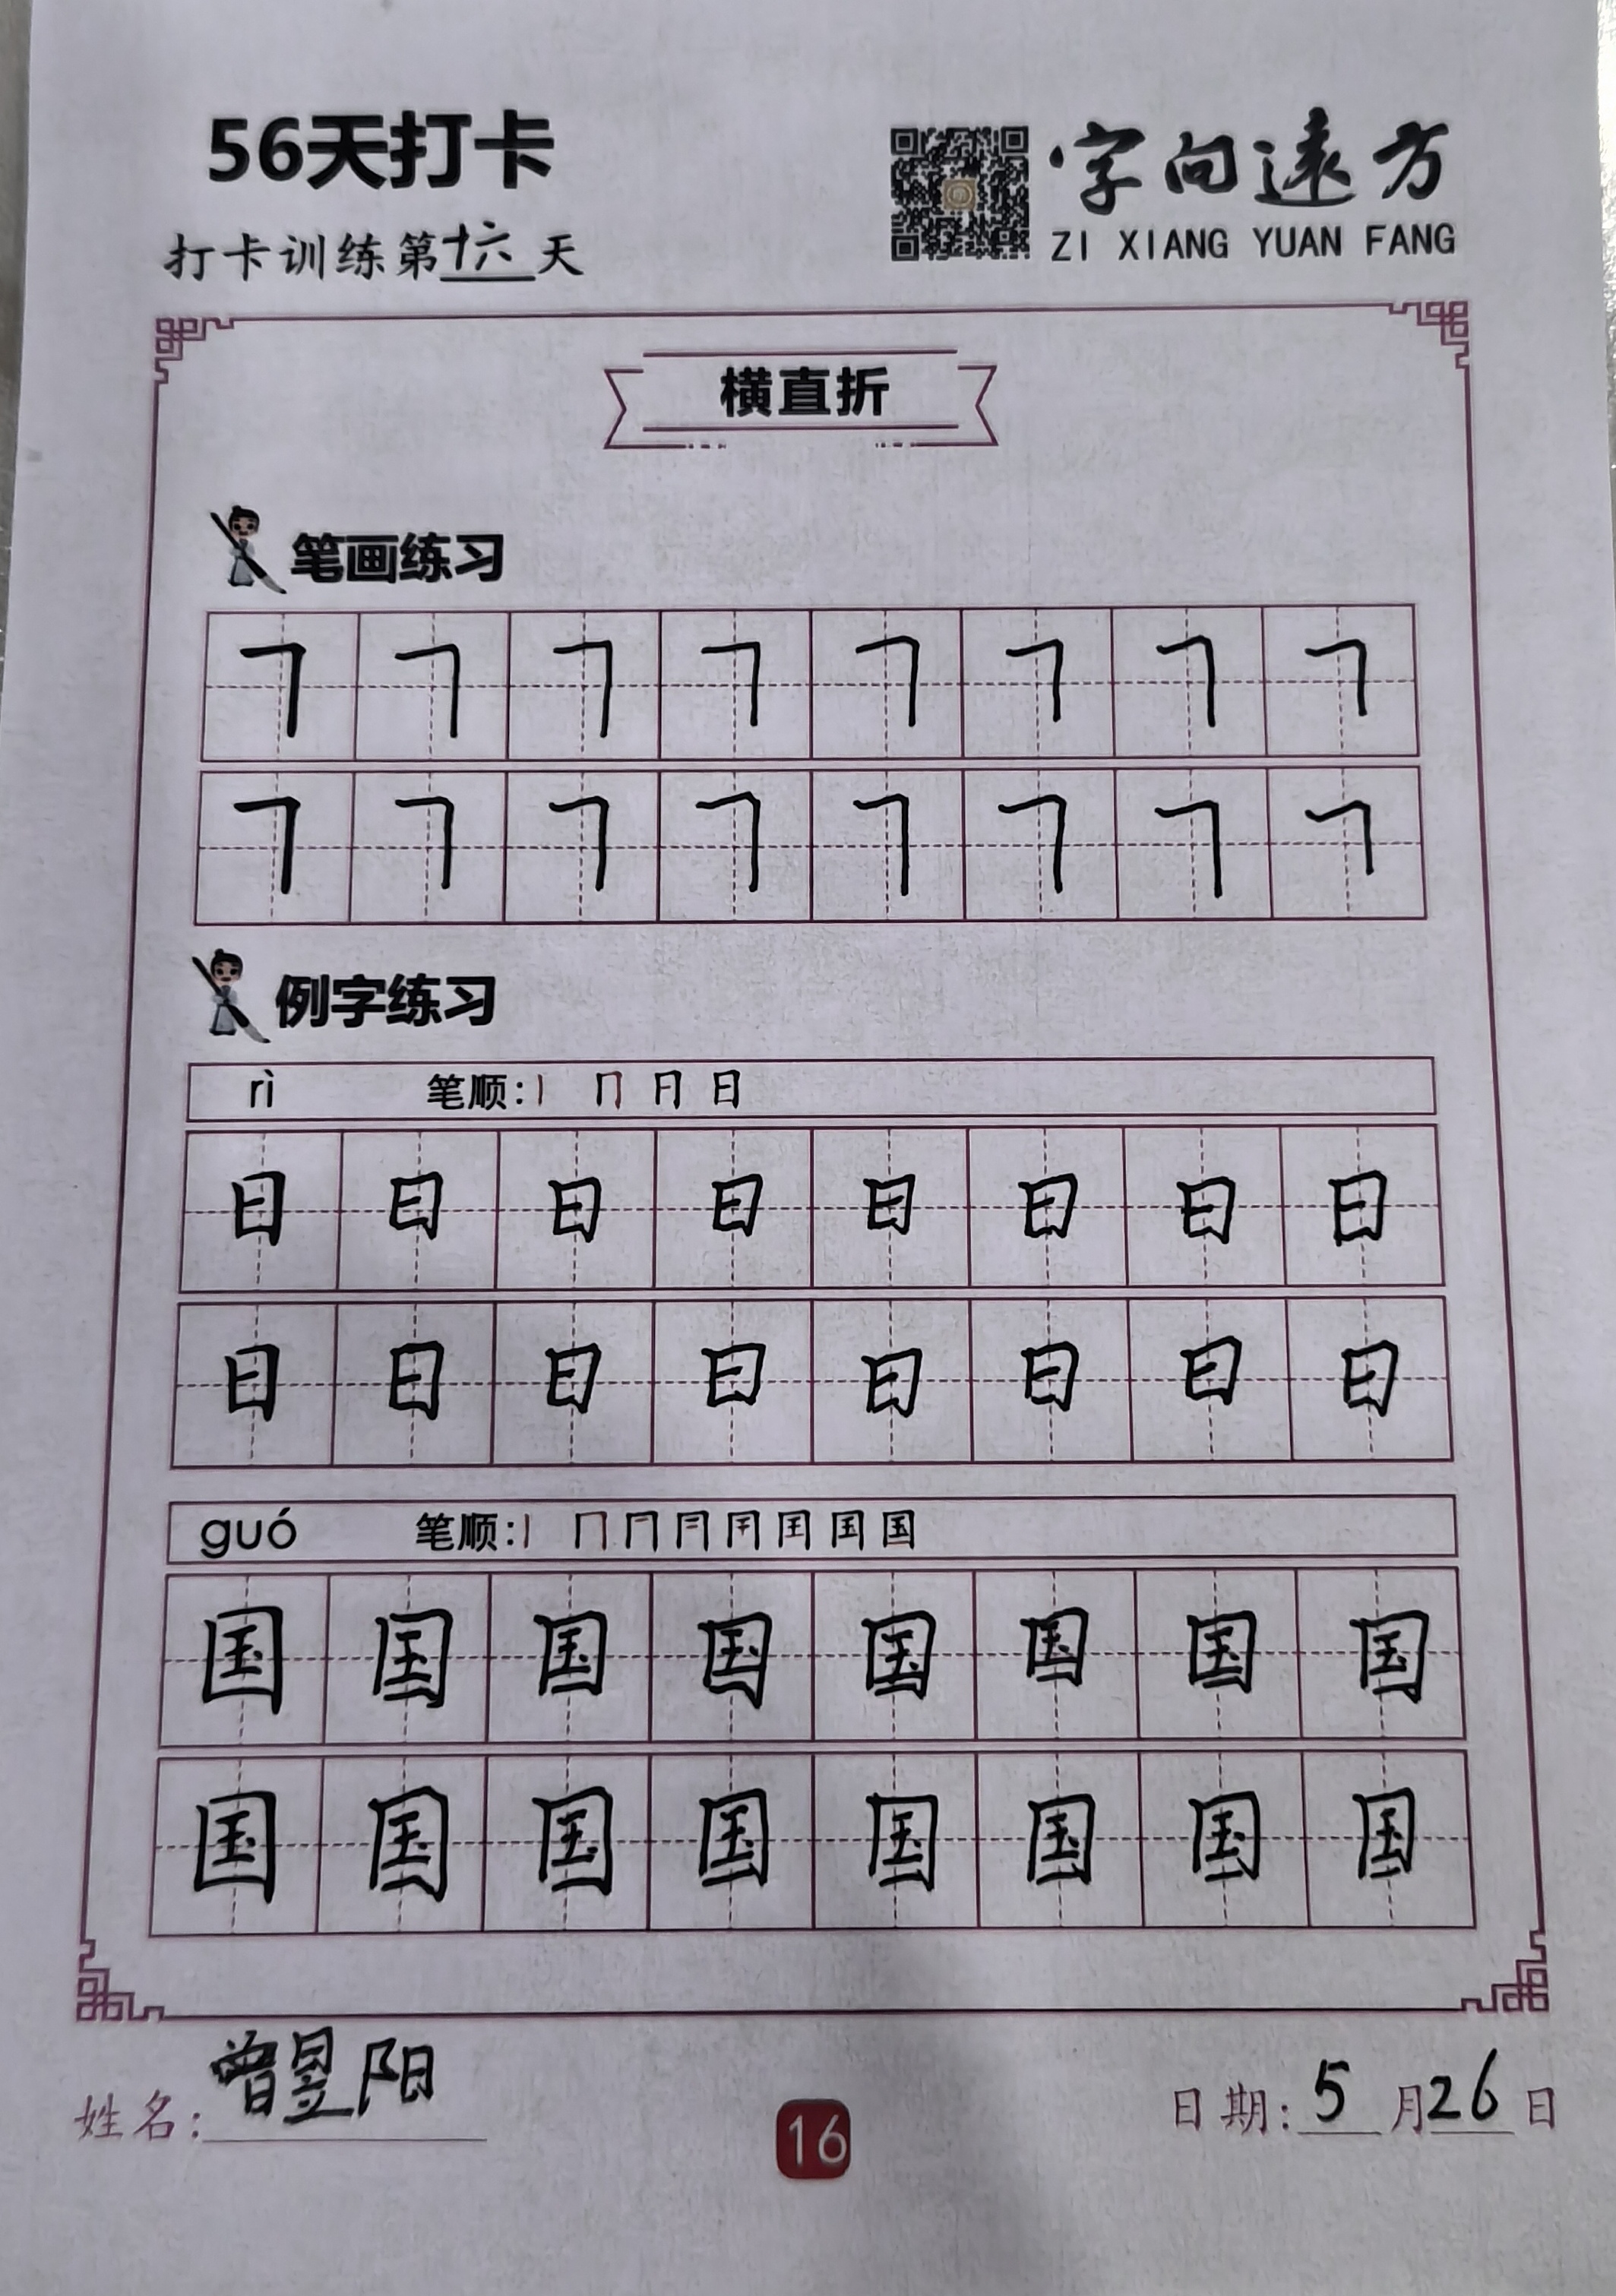 56天打卡
字向远方
ZI XIANG YUAN FANG
打卡训练第十六天
横直折
笔画练习
㇕ ㇕ ㇕ ㇕ ㇕ ㇕ ㇕ ㇕
㇕ ㇕ ㇕ ㇕ ㇕ ㇕ ㇕ ㇕
例字练习
rì 笔顺:丨 冂 月 日
日 日 日 日 日 日 日 日
日 日 日 日 日 日 日 日
guó 笔顺:
国 国 国 国 国 国 国 国
国 国 国 国 国 国 国 国
姓名:曾昱阳
16
日期:5月26日